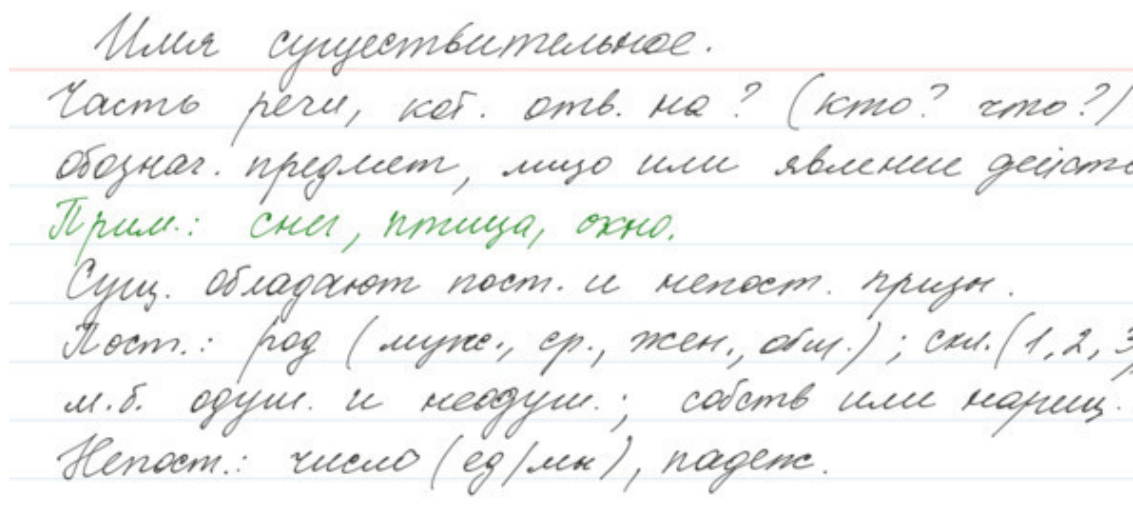 Имя существительное.
Часть речи, кот. отв. на ? (кто? что?)
обознач. предмет, лицо или явление действ
Прим.: снег, птица, окно.
Сущ. обладают пост. и непост. призн.
Пост.: род (муж., ср., жен., общ.); скл. (1, 2, 3)
м.б. одуш. и неодуш.; собств или нариц.
Непост.: число (ед/мн), падеж.